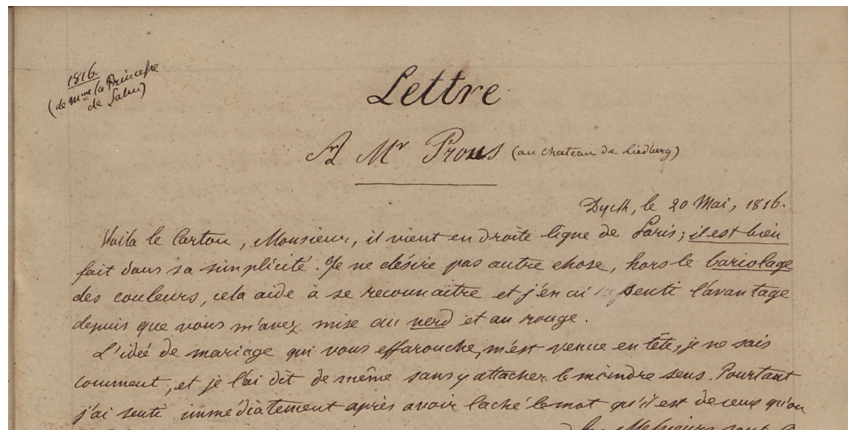 1816.
(de Mme la Princesse
de Salm)
Lettre
A Mr Prous (au chateau de Liedberg)
Dyck, le 20 Mai, 1816.
Voila le Carton, Monsieur, il vient en droite ligne de Paris; il est bien
fait dans sa simplicité. Je ne désire pas autre chose, hors le bariolage
des couleurs, cela aide à se reconnaitre et j'en ai senti l'avantage
depuis que vous m'avez mise au verd et au rouge.
L'idée de mariage qui vous effarouche, m'est venue en tête, je ne sais
comment, et je l'ai dit de même sans y attacher le moindre sens. Pourtant
j'ai senti immédiatement après avoir laché le mot qu'il est de ceux qu'on
les Messieurs sont